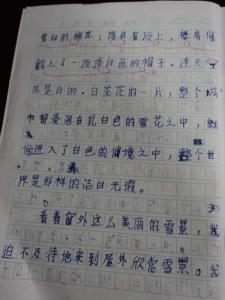 雪白的棉花；落在屋顶上，楼房似
戴上了一顶顶白色的帽子。连天
也是白的。白茫茫的一片，整个城
市都浸泡在乳白色的雪花之中，
进入了白色的仙境之中，整个世
界是那样的洁白无瑕。
看着窗外这么美丽的雪景，我
迫不及待地来到屋外欣赏雪景。我